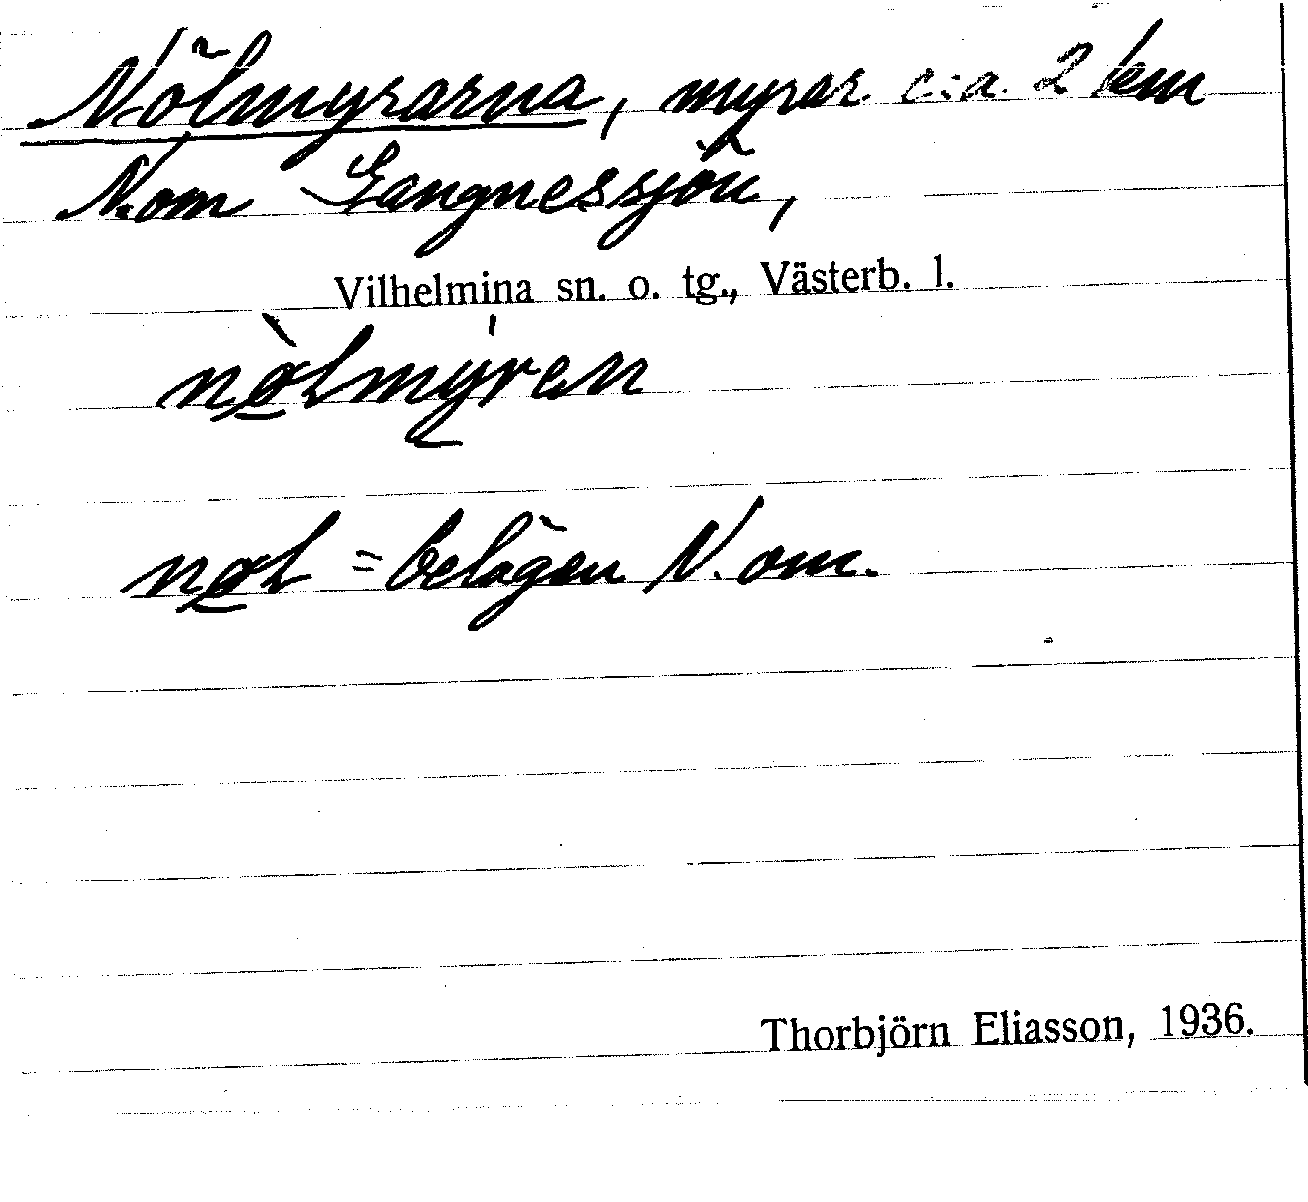 Nölmyrarna, myrar c:a 2 km
N.om Gangnessjön,
Vilhelmina sn. o. tg., Västerb. l.
nø̀lmýren
nøl = belägen N. om.
Thorbjörn Eliasson, 1936.